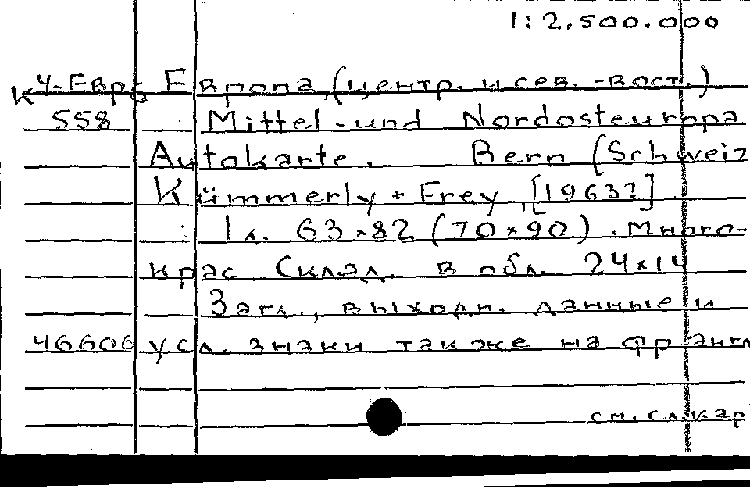 1:2,500.000
К 4-Евро Европа (центр. и сев.-вост.)
558 Mittel-und Nordosteuropa
Autokarte. Bern (Schweiz
Kümmerly + Frey, [1963?]
1 л. 63×82 (70×90). Много-
крас Склад. в обл. 24×14
Загл., выходн. данные и
46606 усл. знаки также на фр англ
см. сл. кар